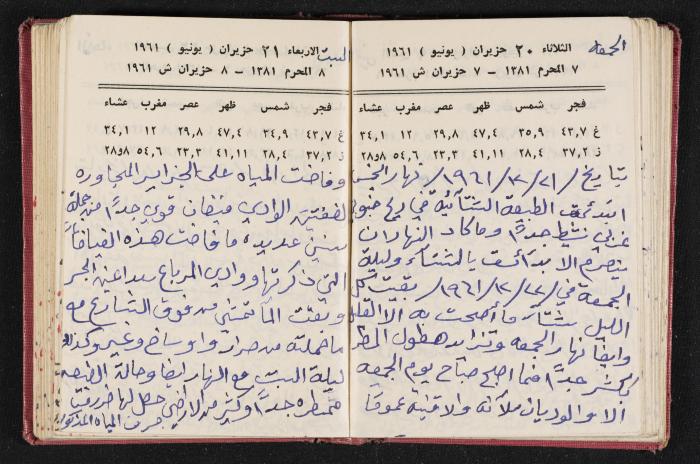 الجمعة
الثلاثاء ٢٠ حزيران ( يونيو ) ١٩٦١
٧ المحرم ١٣٨١ – ٧ حزيران ش ١٩٦١
فجر شمس ظهر عصر مغرب عشاء
غ ٤٣,٧ ٣٥,٩ ٤٧,٤ ٢٩,٨ ١٢ ٣٤,١
ز ٣٧,٢ ٢٨,٤ ٤١,١١ ٢٣,٣ ٥٤,٦ ٢٨و٨
بتاريخ /٢١/١٢/١٩٦١/ نهار الخميس
ابتدئت الطبيعة الشتائية في ريح
غربي نشيط جدًا وما كاد النهار ان
ينصرم الا بدأت بالشتاء وليلة
الجمعة في/٢٢/١٢/١٩٦١/ بقيت كل
الليل شتاء وما أصبحت به الا
وايضا نهار الجمعة وتزايد هطول المطر
بكثر جدًا فما اصبح صباح يوم الجمعه
الا والوديان ملآنه والاقنية عموقا
السبت
الاربعاء ٢١ حزيران ( يونيو ) ١٩٦١
٨ المحرم ١٣٨١ – ٨ حزيران ش ١٩٦١
فجر شمس ظهر عصر مغرب عشاء
غ ٤٣,٧ ٣٤,٩ ٤٧,٤ ٢٩,٨ ١٢ ٣٤,١
ز ٣٧,٢ ٢٨,٤ ٤١,١١ ٢٣,٣ ٥٤,٦ ٢٨و٨
وفاضت المياه على الجزاير المجاوره
لضفتي الوادي فيضان قوي جدًا من جملة
سنين عديده ما فاضت هذه الفياضات
التي ذكرتها ووادي المرباع سد عنبة الجسر
وبقت الماء تمشي من فوق الشارع مع
ما حملته من صرار واوساخ وغير وكذلك
ليلة السبت مع النهار ايضا وحالة الطبيعه
ممطره جدًا وكثير من الاراضي حصل لها
جرف المياه